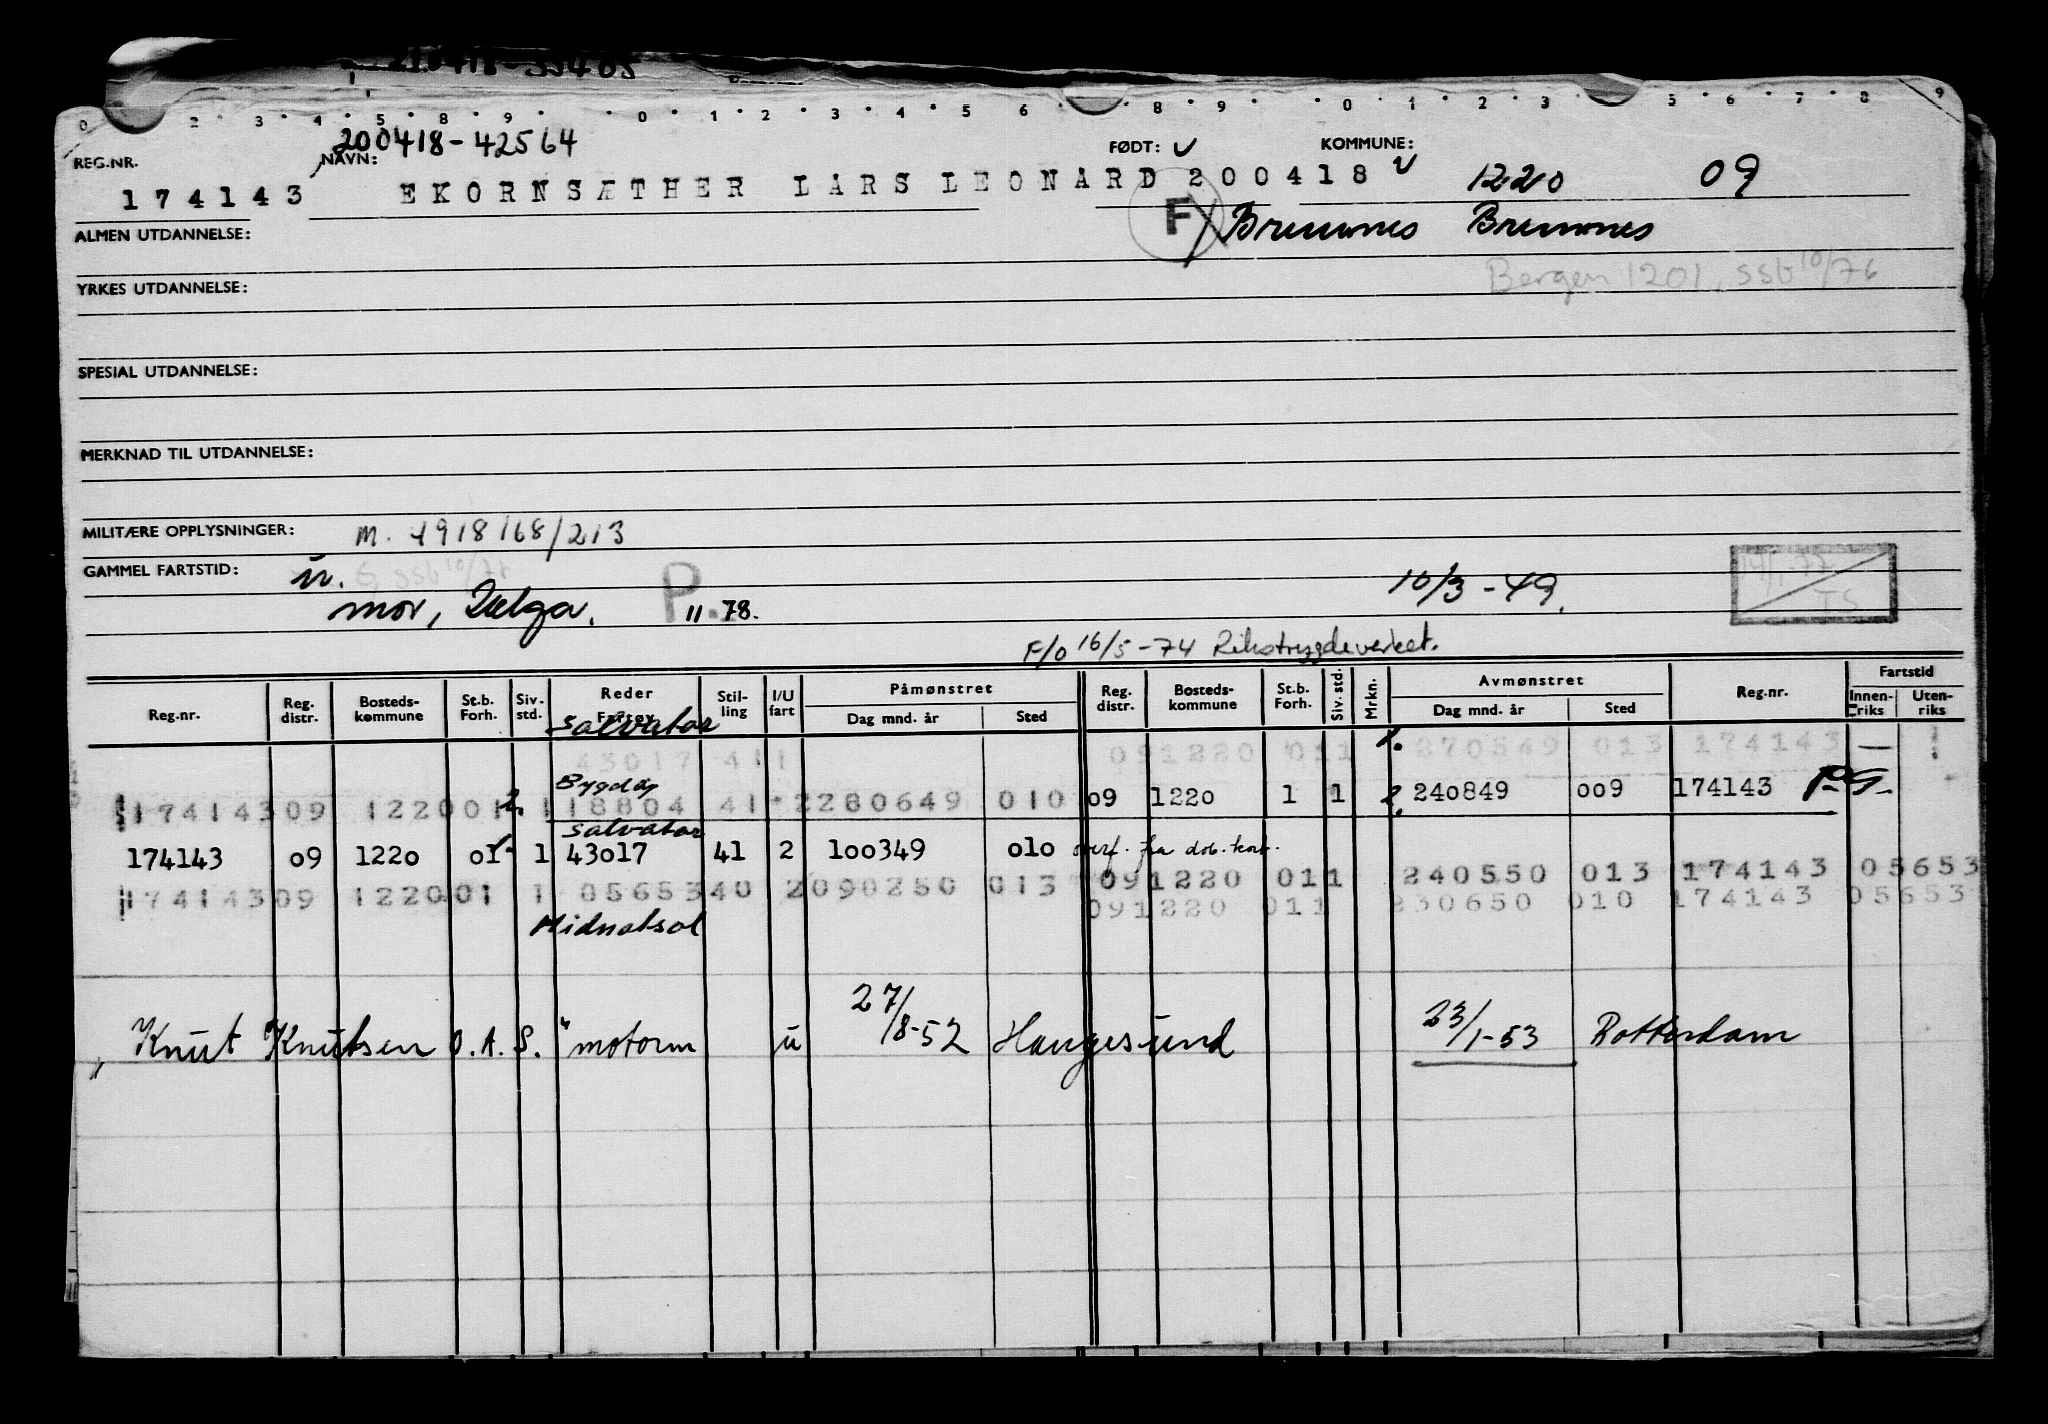 210418-55405
0 2 3 4 5 8 9 0 1 2 3 4 5 6 8 9 0 1 2 3 5 6 7 8 9
200418-42564
REG.NR. NAVN: FØDT: KOMMUNE:
174143 EKORNSÆTHER LARS LEONARD 200418 1220 09
F
ALMEN UTDANNELSE: Bremnes Bremnes
Bergen 1201, ssb 10/76
YRKES UTDANNELSE:
SPESIAL UTDANNELSE:
MERKNAD TIL UTDANNELSE:
MILITÆRE OPPLYSNINGER: M. 1918/68/213
GAMMEL FARTSTID:
mor, Helga. P. 11-78. 10/3-49.
F/o 16/5-74 Rikstrygdeverket.
Reg.nr. Reg. distr. Bosteds-kommune St.b. Forh. Siv. std. Reder Fartøy Stil-ling I/U fart Påmønstret Dag mnd. år Sted Reg. distr. Bosteds-kommune St.b. Forh. Siv. std. Mrkn. Avmønstret Dag mnd. år Sted Reg.nr. Fartstid Innen-riks Uten-riks
Salvator
43017 411 091220 011 1. 270549 013 174143 —
Bygdøy
17414309 122001 2. 1 18804 41 2280649 010 09 1220 1 1 2. 240849 009 174143 P.G.
Salvator
174143 09 1220 01 1 43017 41 2 100349 010 overf. fra dob. kort.
17414309 122001 1 0565340 2090250 013 091220 011 240550 013 174143 05653
091220 011 230650 010 174143 05653
Midnatsol
Knut Knutsen O.A.S. " motorm u 27/8-52 Haugesund 23/1-53 Rotterdam